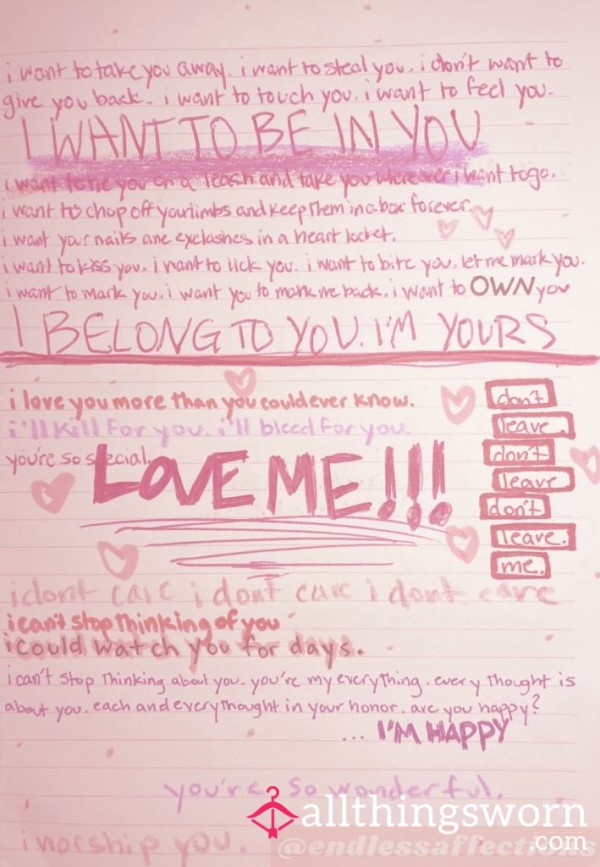 i want to take you away. i want to steal you. i don't want to
give you back. i want to touch you. i want to feel you.
I WANT TO BE IN YOU
i want to tie you on a leash and take you wherever i want to go.
i want to chop off your limbs and keep them in a box forever.
i want your nails and eyelashes in a heart locket.
i want to kiss you. i want to lick you. i want to bite you. let me mark you.
i want to mark you. i want you to mark me back. i want to OWN you
I BELONG TO YOU. I'M YOURS
i love you more than you could ever know.
i'll kill for you. i'll bleed for you.
you're so special.
LOVE ME!!!
don't
leave.
don't
leave
don't
leave.
me.
i dont care i dont care i dont care
i can't stop thinking of you
i could watch you for days.
i can't stop thinking about you. you're my everything. every thought is
about you. each and every thought in your honor. are you happy?
... I'M HAPPY
you're so wonderful.
allthingsworn
.com
i worship you.